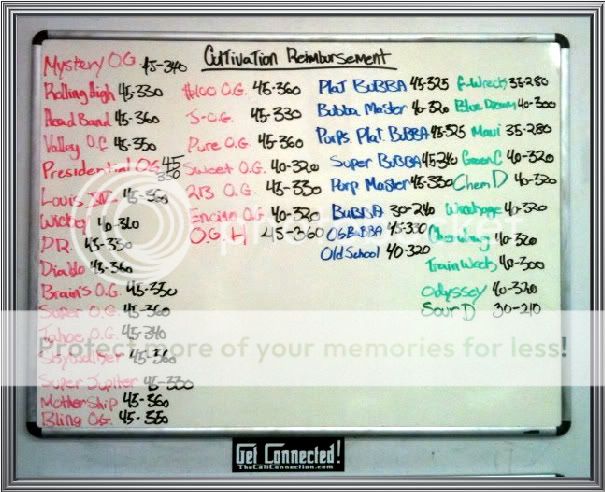 Cultivation Reimbursement
Mystery O.G. 45-340
Rolling High 45-330
Head Band 45-360
Valley O.G 45-350
Presidential OG 45
350
Louis XIII 45-350
40-360
P.R. 45-350
Diablo 45-360
Brain's O.G. 45-330
Super O.G. 45-360
Tahoe O.G. 45-340
45-360
Super Jupiter 45-330
Mothership 45-360
Bling OG. 45-350
$100 O.G. 45-360
J-O.G. 45-330
Pure O.G. 45-360
Sweet O.G. 40-320
213 O.G. 45-330
Encino OG 40-320
O.G. H 45-360
Plat BUBBA 45-325
Bubba Master 40-320
Purps. Plat. BUBBA 45-325
Super BUBBA 45-340
Purp Master 45-330
BUBBA 30-240
OG BUBBA 45-330
Old School 40-320
F-Wreck 35-280
Blue Dream 40-300
Maui 35-280
Green C 40-320
Chem D 40-320
40-320
40-300
Train Wreck 40-300
Odyssey 40-320
Sour D 30-210
Protect more of your memories for less!
Get Connected!
TheCaliConnection.com